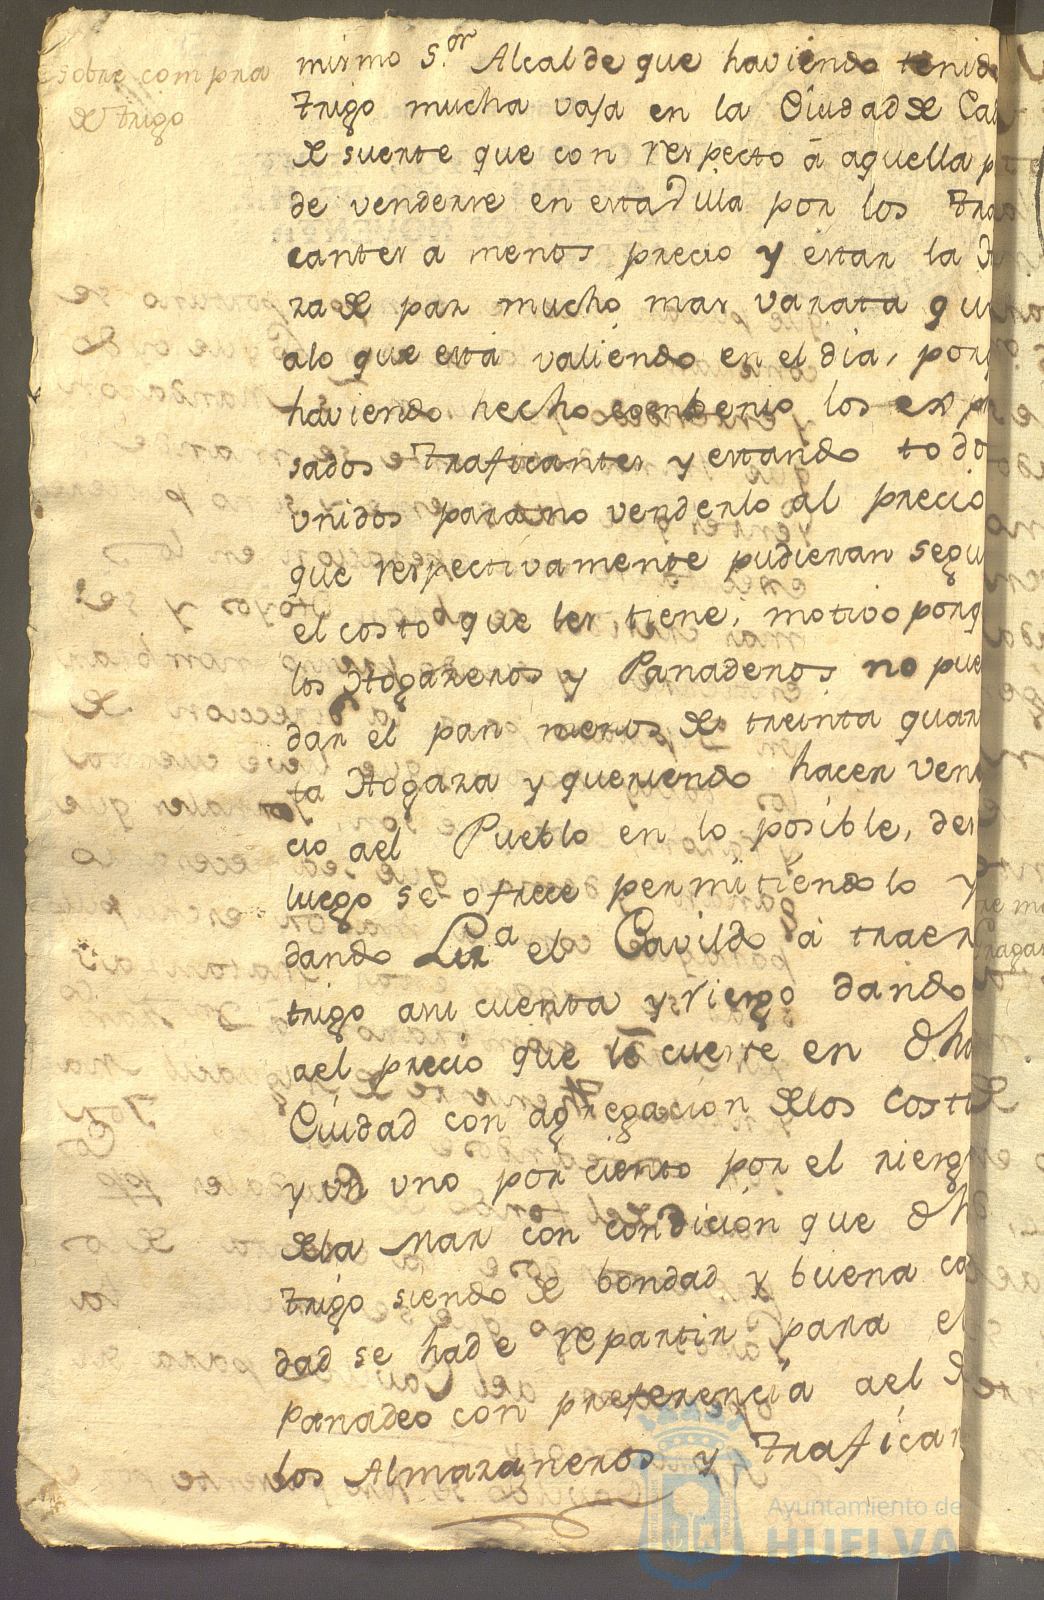 sobre compra
de trigo
mismo S.or Alcalde que haviendo tenid
trigo mucha vaja en la Ciudad de Cad
de suerte que con respecto á aquella p
de venderse en esta Villa por los traf
cantes a menos precio y estar la
za de pan mucho mas varata qu
alo que está valiendo en el dia, porq
haviendo hecho combenio los expre
sados traficantes y estando todo
unidos para no venderlo al precio
que respectivamente pudieran segu
el costo que les tiene, motivo porq
los Hogazeros y Panaderos no pue
dar el pan menos de treinta quar
ta Hogaza y queriendo hacer vene
cio ael Pueblo en lo posible, des
luego se ofrece permitiendolo y
dando Liz.a el Cavildo á traer
trigo asu cuenta y riesgo dando
ael precio que le cueste en dha
Ciudad con agregacion delos costos
y un uno por ciento por el riesg
dela Mar con condicion que dho
trigo siendo de bondad y buena ca
dad se hade repartir para el
Panadeo con preferencia ael d
los Almazaneros y trafican
Ayuntamiento de
HUELVA